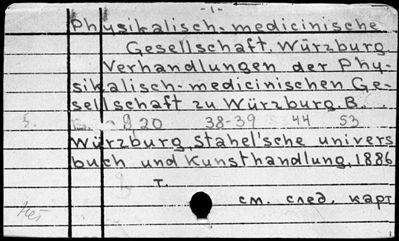 -1-
Physikalisch-medicinische
Gesellschaft. Würzburg
Verhandlungen der Phy-
sikalisch-medicinischen Ge-
sellschaft zu Würzburg. B.
5. 20 38-39 44 53
Würzburg, Stahel'sche univers
buch und Kunsthandlung, 1886
т.
см. след. карт